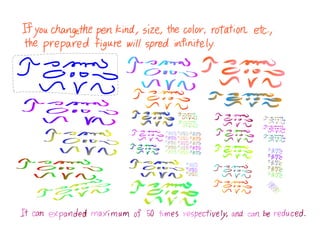 If you change the pen kind, size, the color, rotation etc.,
the prepared figure will spred infinitely
It can expanded maximum of 50 times respectively, and can be reduced.